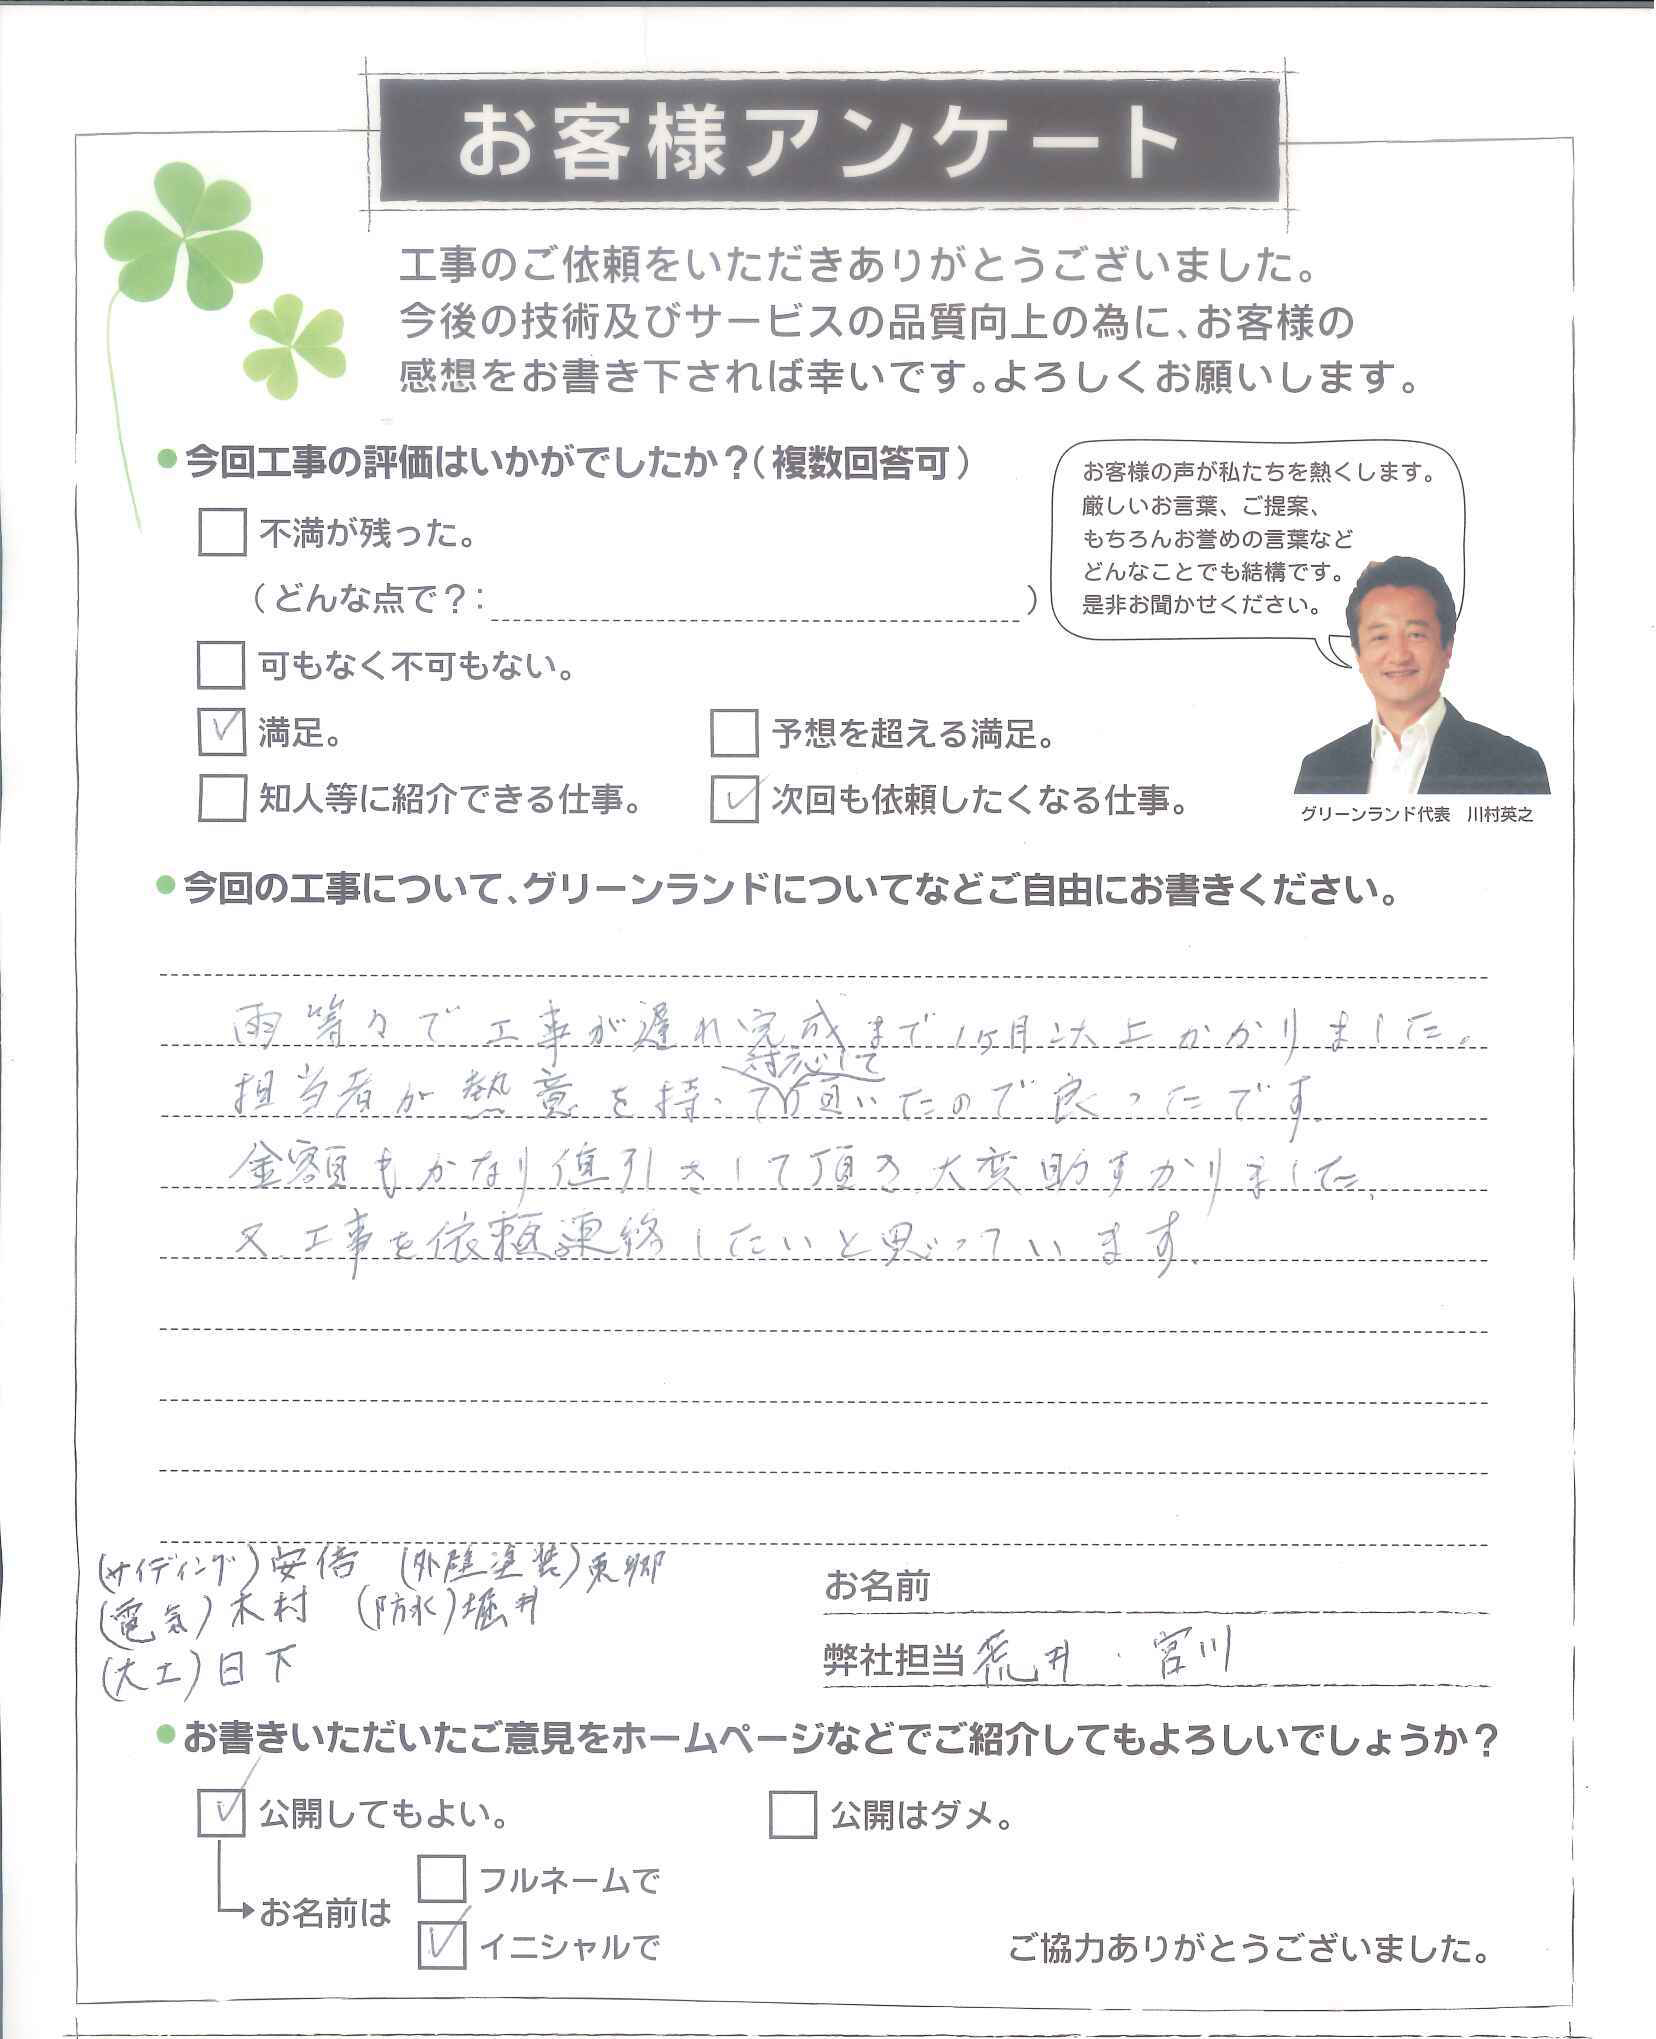 お客様アンケート
工事のご依頼をいただきありがとうございました。
今後の技術及びサービスの品質向上の為に、お客様の
感想をお書き下されば幸いです。よろしくお願いします。
●今回工事の評価はいかがでしたか？（複数回答可）
不満が残った。
（どんな点で？： ）
可もなく不可もない。
✓ 満足。
予想を超える満足。
知人等に紹介できる仕事。
✓ 次回も依頼したくなる仕事。
お客様の声が私たちを熱くします。
厳しいお言葉、ご提案、
もちろんお誉めの言葉など
どんなことでも結構です。
是非お聞かせください。
グリーンランド代表　川村英之
●今回の工事について、グリーンランドについてなどご自由にお書きください。
雨等々で工事が遅れ完成まで1ヶ月以上かかりました。
担当者が熱意を持って対応して頂いたので良ったです。
金額もかなり値引きして頂き、大変助すかりました。
又、工事を依頼連絡したいと思っています。
(サイディング)安倍　(外壁塗装)東郷
(電気)木村　(防水)堀井
(大工)日下
お名前
弊社担当 荒井・宮川
●お書きいただいたご意見をホームページなどでご紹介してもよろしいでしょうか？
✓ 公開してもよい。
公開はダメ。
お名前は
フルネームで
✓ イニシャルで
ご協力ありがとうございました。